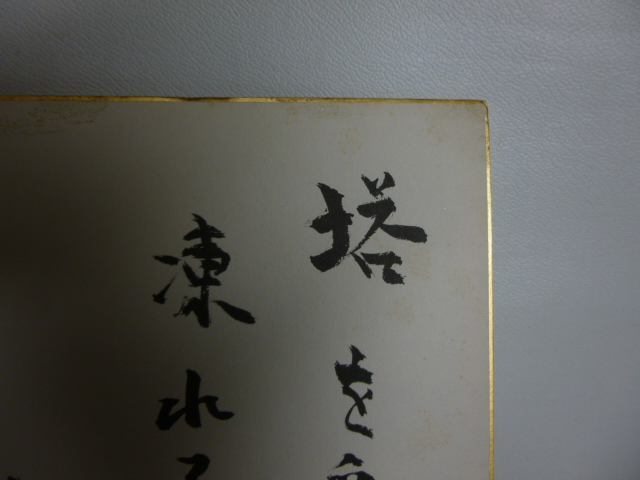 塔を
凍れる